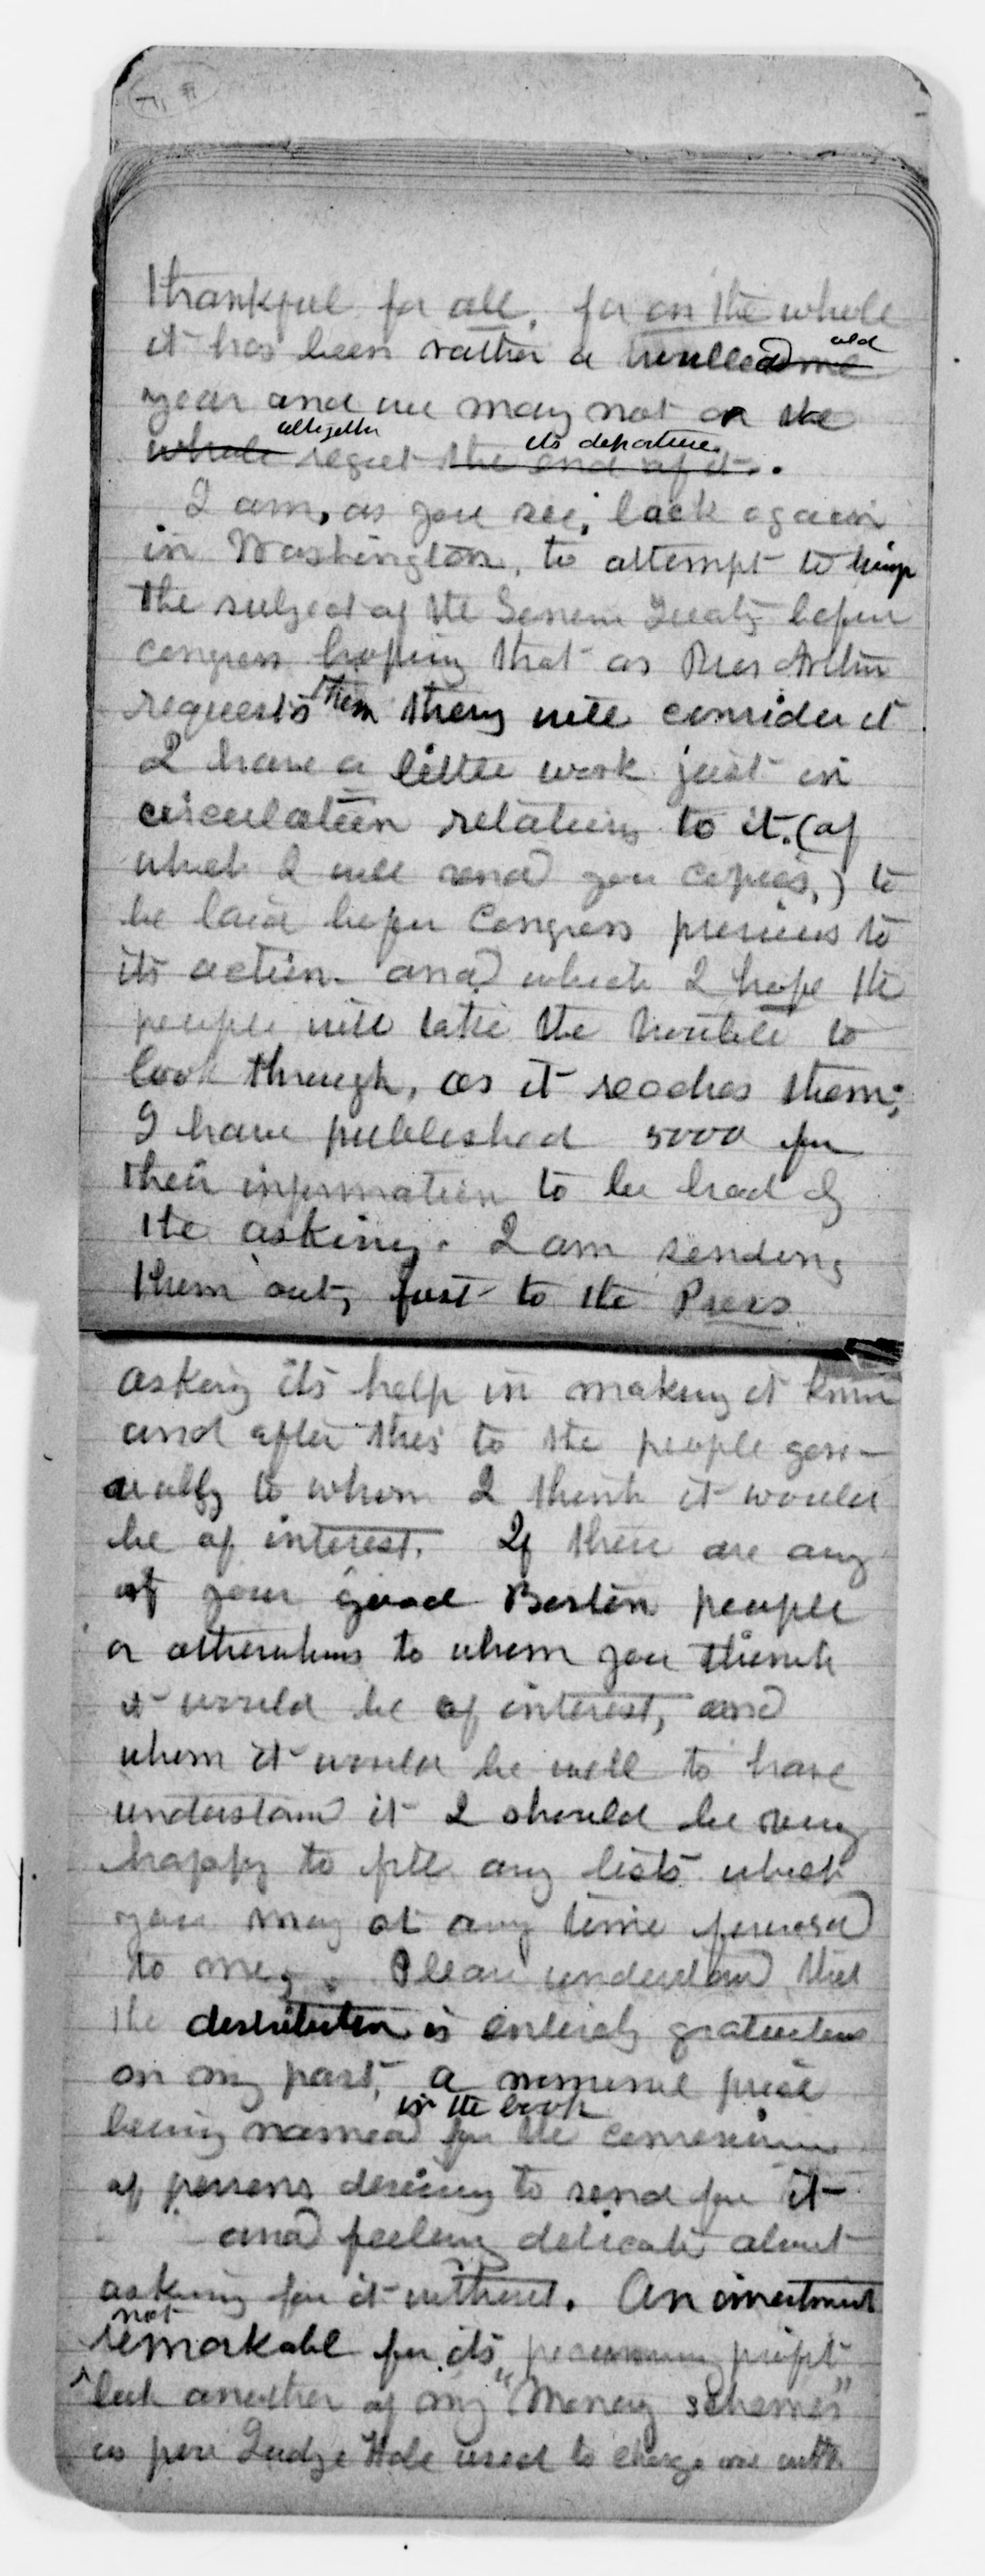 thankful for all, for on the whole
it has been rather a troublesome old
year and we may not on the
whole altogether regret the end of it its departure.
I am, as you see, back again
in Washington, to attempt to bring
the subject of the Geneva Treaty before
Congress hoping that as Pres Arthur
requests them they will consider it
I have a little work just in
circulation relating to it. (of
which I will send you copies,) to
be laid before Congress previous to
its action and which I hope the
people will take the trouble to
look through, as it reaches them;
I have published 5000 for
their information to be had by
the asking. I am sending
them out, first to the Press
asking its help in making it known
and after this to the people gen-
erally to whom I think it would
be of interest. If there are any
of your good Boston people
or to whom you think
it would be of interest, and
whom it would be well to have
understand it I should be very
happy to fill any lists which
you may at any time forward
to me. Please understand that
the distribution is entirely gratuitous
on my part, a nominal price
being named in the book for the convenience
of persons desiring to send for it
and feeling delicate about
asking for it without. An investment
not remarkable for its pecuniary profit
but another of my "Money schemes"
as poor Judge Hale used to charge me with